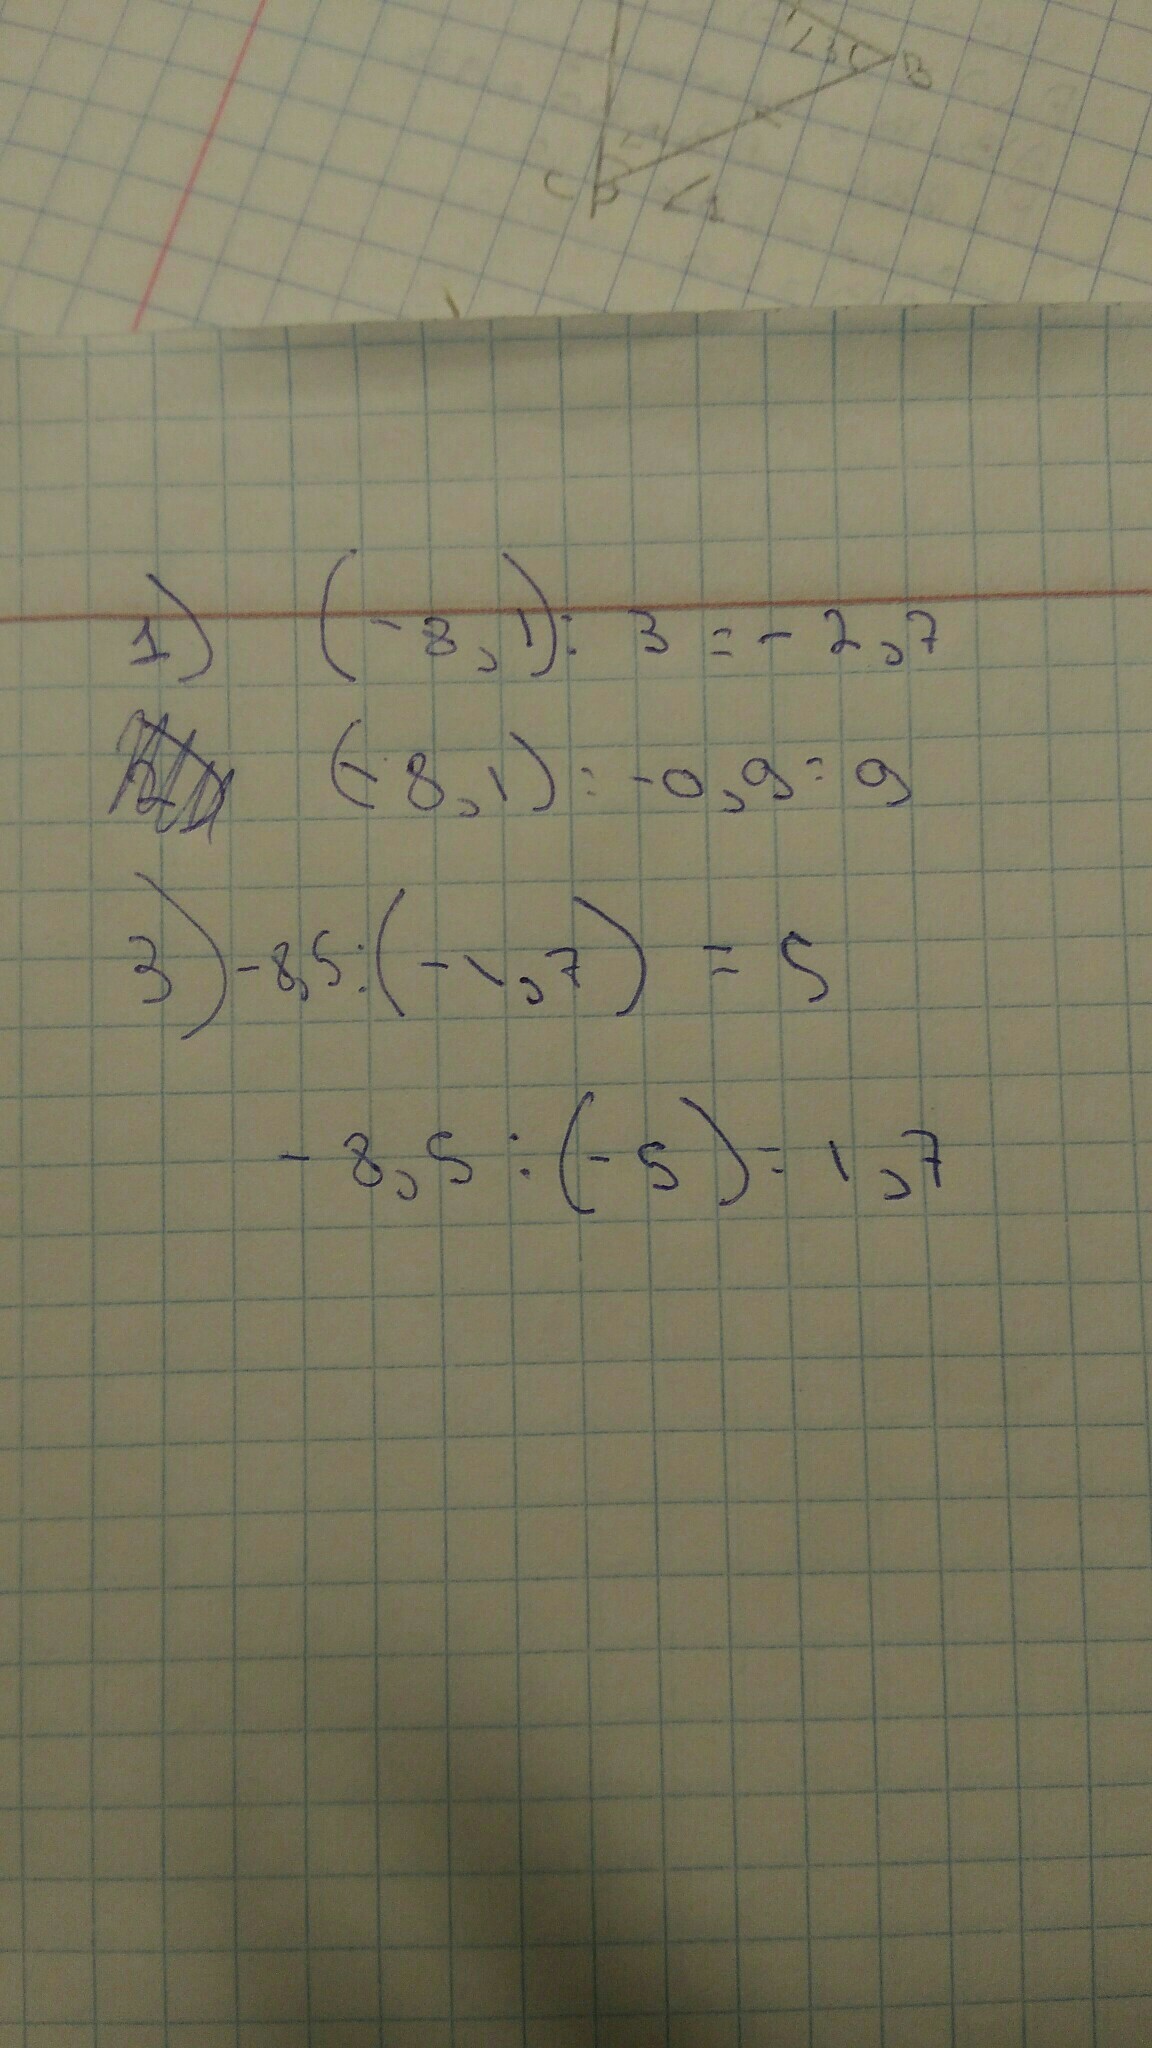 ∠3
B
C
∠1
1) (-8,1): 3 = - 2,7
(- 8,1) : -0,9 = 9
3) -8,5:(-1,7) = 5
- 8,5 : (-5) = 1,7